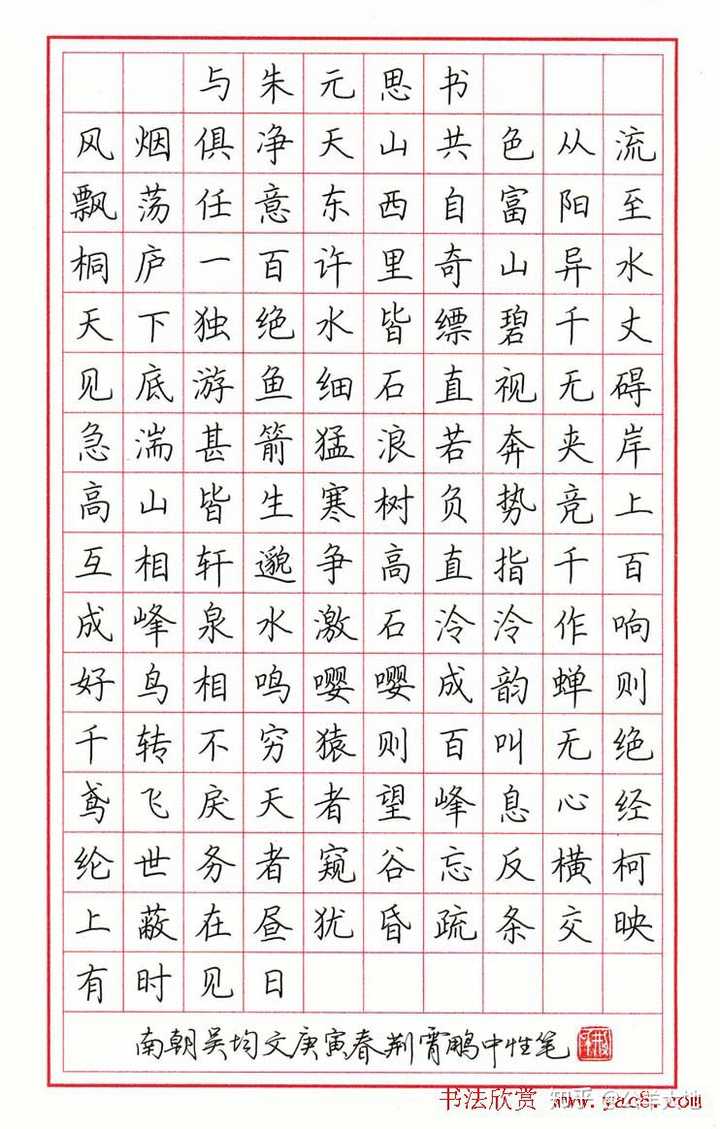 与朱元思书
风烟俱净天山共色从流
飘荡任意东西自富阳至
桐庐一百许里奇山异水
天下独绝水皆缥碧千丈
见底游鱼细石直视无碍
急湍甚箭猛浪若奔夹岸
高山皆生寒树负势竞上
互相轩邈争高直指千百
成峰泉水激石泠泠作响
好鸟相鸣嘤嘤成韵蝉则
千转不穷猿则百叫无绝
鸢飞戾天者望峰息心经
纶世务者窥谷忘反横柯
上蔽在昼犹昏疏条交映
有时见日
南朝吴均文庚寅春荆霄鹏中性笔
书法欣赏 www.yac8.com
知乎